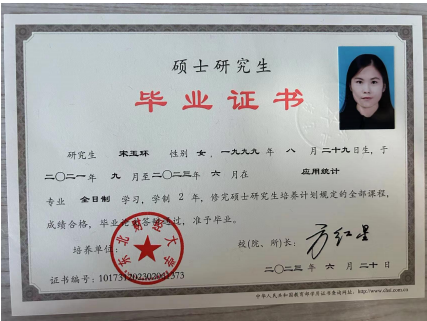 硕士研究生
毕业证书
研究生 宋玉环 性别 女，一九九九年 八 月二十九日生，于
二〇二一年 九 月至二〇二三年 六 月在 应用统计
专业 全日制 学习，学制 2 年，修完硕士研究生培养计划规定的全部课程，
成绩合格，毕业论文答辩通过，准予毕业。
培养单位：
东北财经大学
校（院、所）长：
证书编号：
二〇二三年 六 月二十日
中华人民共和国教育部学历证书查询网址：http://www.chsi.com.cn